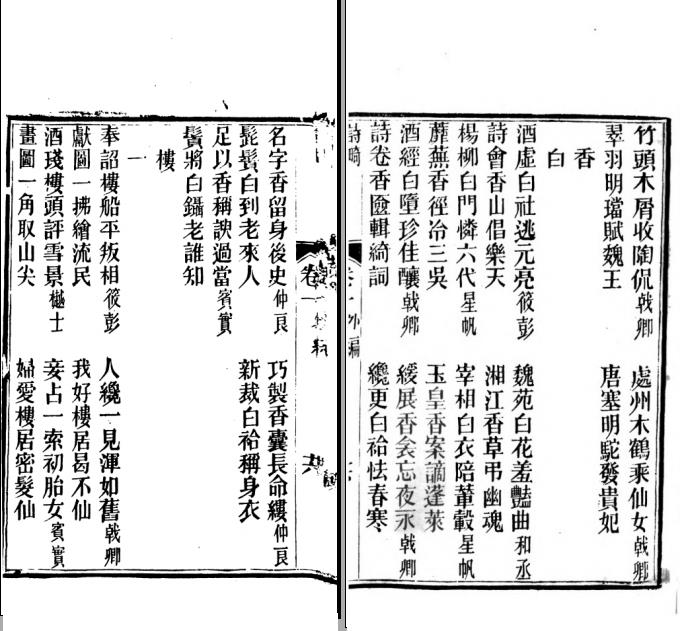 竹頭木屑收陶侃戟卿 處州木鶴乘仙女戟卿
翠羽明璫賦魏王 唐塞明駝發貴妃
香
白
酒虛白社逃元亮筱彭 魏苑白花羞豔曲和丞
詩會香山倡樂天 湘江香草弔幽魂
楊柳白門憐六代星帆 宰相白衣陪葷轂星帆
蘼蕪香徑冶三吳 玉皇香案謫蓬萊
酒經白墮珍佳釀戟卿 緩展香衾忘夜永戟卿
詩卷香奩輯綺詞 纔更白袷怯春寒
詩畸 卷一外編
卷一
名字香留身後史仲良 巧製香囊長命縷仲良
髭鬢白到老來人 新裁白袷稱身衣
足以香稱諛過當賓實
鬢將白鑷老誰知
樓
一
奉詔樓船平叛相筱彭 人纔一見渾如舊戟卿
獻圖一拂繪流民 我好樓居曷不仙
酒琖樓頭評雪景樾士 妾占一索初胎女賓實
畫圖一角取山尖 婦愛樓居密髮仙